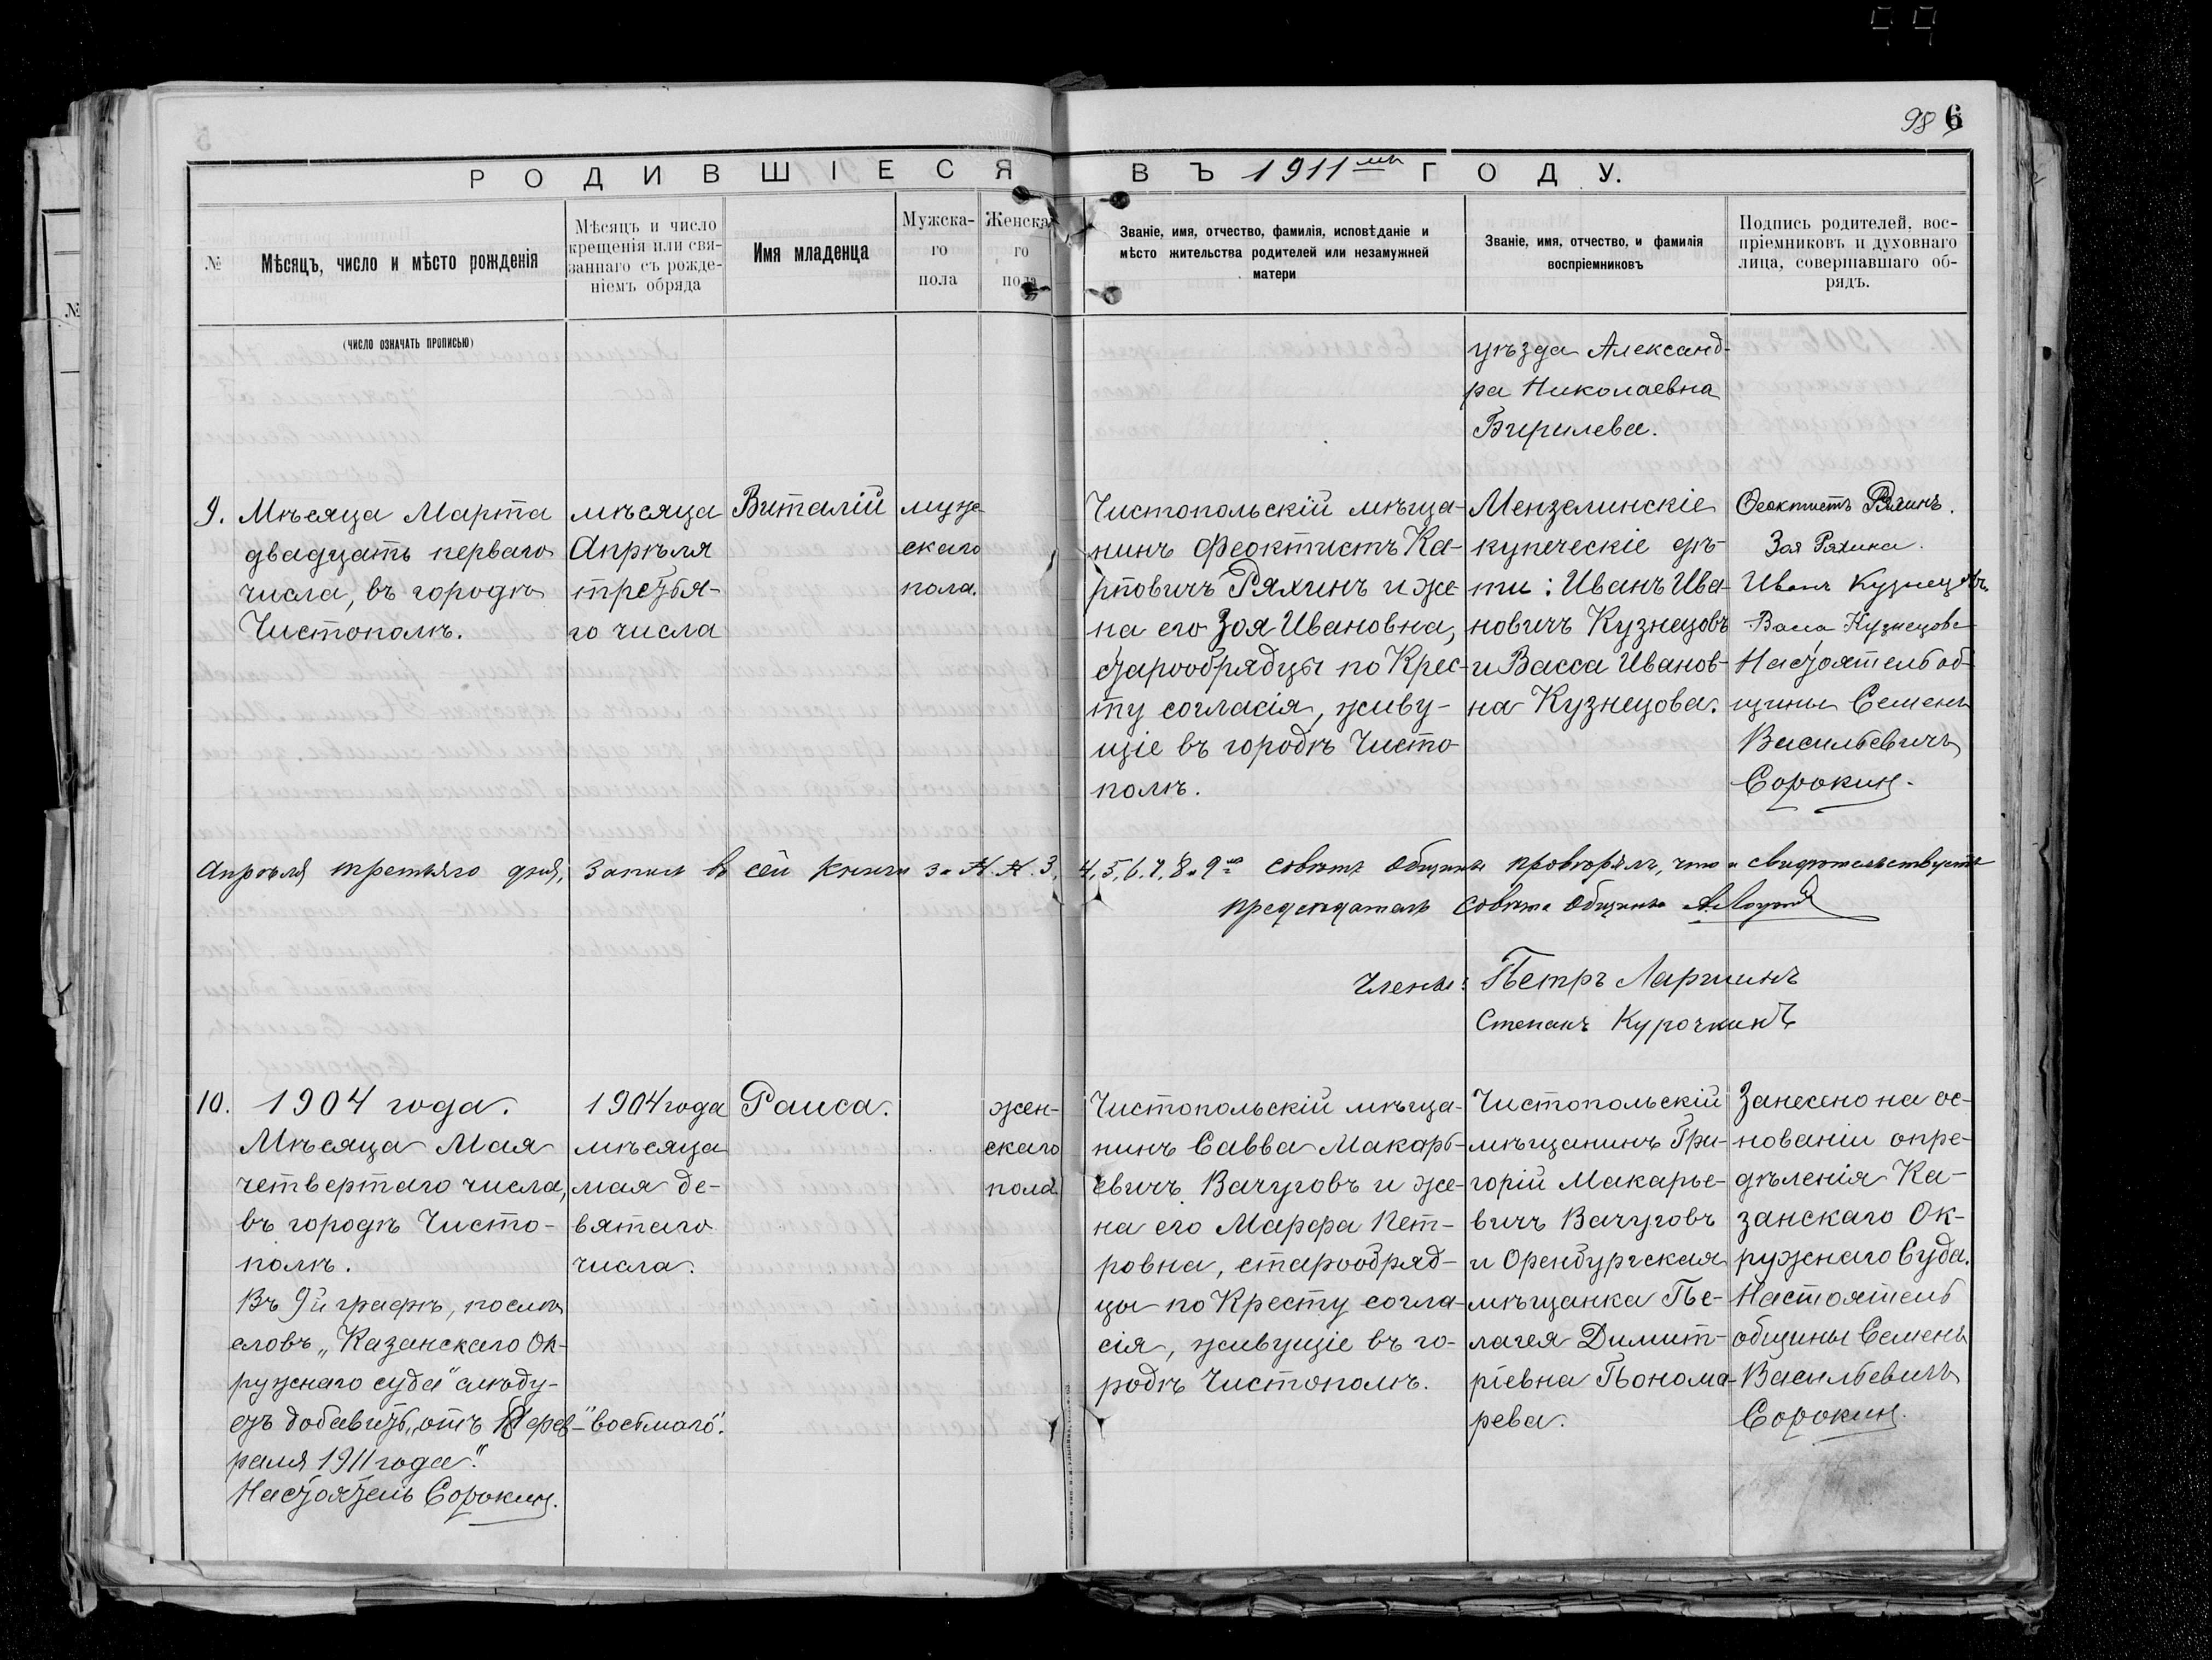 98 6
РОДИВШІЕСЯ ВЪ 1911мъ ГОДУ.
№
Мѣсяцъ, число и мѣсто рожденія
Мѣсяцъ и число
крещенія или свя-
заннаго съ рожде-
ніемъ обряда
Имя младенца
Мужска-
го
пола
Женска
го
пола
Званіе, имя, отчество, фамилія, исповѣданіе и
мѣсто жительства родителей или незамужней
матери
Званіе, имя, отчество, и фамилія
воспріемниковъ
Подпись родителей, вос-
пріемниковъ и духовнаго
лица, совершавшаго об-
рядъ.
(ЧИСЛО ОЗНАЧАТЬ ПРОПИСЬЮ)
уѣзда Александ-
ра Николаевна
Бирилева.
9. Мѣсяца Марта
двадцать перваго
числа, въ городѣ
Чистополѣ.
мѣсяца
Апрѣля
третья-
го числа
Виталій
муже
скаго
пола.
Чистопольскій мѣща-
нинъ Феоктистъ Ка-
рповичъ Ряхинъ и же-
на его Зоя Ивановна,
старообрядцы по Крес-
ту согласія, живу-
щіе въ городѣ Чисто-
полѣ.
Мензелинскіе
купеческіе дѣ-
ти: Иванъ Ива-
новичъ Кузнецовъ
и Васса Иванов-
на Кузнецова.
Ѳеоктистъ Ряхинъ.
Зоя Ряхина.
Иванъ Кузнецовъ
Васса Кузнецова
Настоятель об-
щины Семенъ
Васильевичъ
Сорокин.
Апрѣля третьяго дня, записи въ сей книги за №.№. 3, 4, 5, 6, 7, 8 и 9мъ совѣтъ общины провѣрялъ, что и свидѣтельствуетъ
Предсѣдатель Совѣта Общины
Члены: Петръ Ларшинъ
Степанъ Курочкинъ
10. 1904 года.
Мѣсяца Мая
четвертаго числа,
въ городѣ Чисто-
полѣ.
Въ 9й графѣ, послѣ
словъ „Казанскаго Ок-
ружнаго суда" слѣду-
етъ добавить „отъ 18 фев-
раля 1911 года".
Настоятель Сорокин.
1904 года
мѣсяца
мая де-
вятаго
числа.
"восьмаго".
Раиса.
жен-
скаго
пола
Чистопольскій мѣща-
нинъ Савва Макарь-
евичъ Вачуговъ и же-
на его Марфа Пет-
ровна, старообряд-
цы по Кресту согла-
сія, живущіе въ го-
родѣ Чистополѣ.
Чистопольскій
мѣщанинъ Гри-
горій Макарье-
вичъ Вачуговъ
и Оренбургская
мѣщанка Пе-
лагея Димит-
ріевна Понома-
рева.
Занесено на ос-
нованіи опре-
дѣленія Ка-
занскаго Ок-
ружнаго Суда.
Настоятель
общины Семенъ
Васильевичъ
Сорокин.